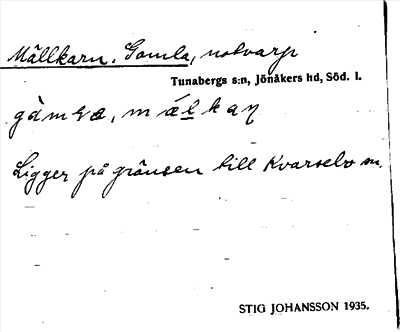 Mällkarn, Gamla, notvarp
Tunabergs s:n, Jönåkers hd, Söd. l.
gàmla, mǽlkaɳ
Ligger på gränsen till Kvarsebo sn
STIG JOHANSSON 1935.